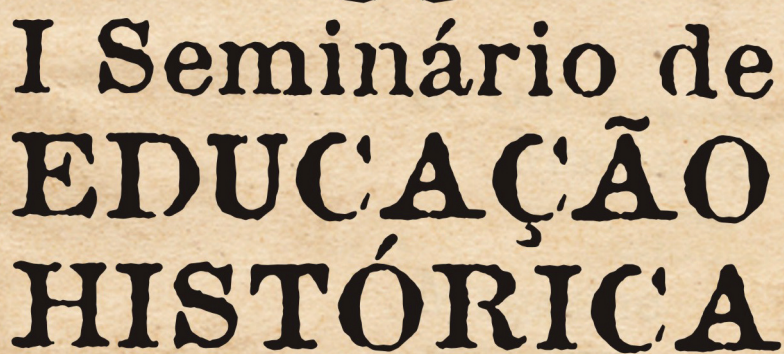 I Seminário de
EDUCAÇÃO
HISTÓRICA